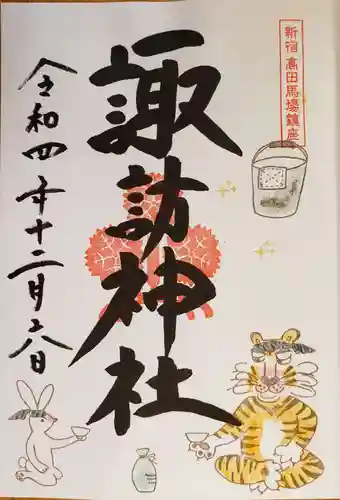 新宿高田馬場鎮座
諏訪神社
令和四年十二月二八日